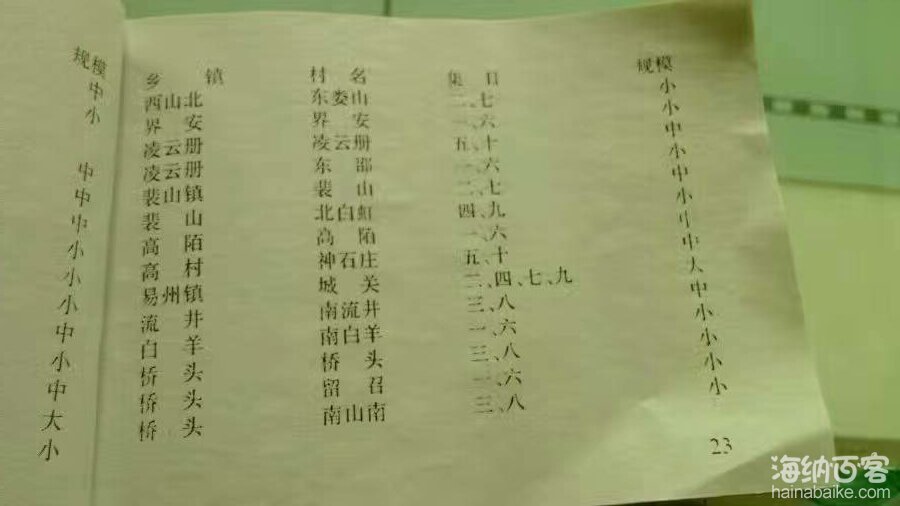 规模
中
小
中
中
中
小
小
小
中
小
中
大
小
乡 镇 村 名 集 日 规模
西山北 东娄山 二、七 小
界 安 界 安 一、六 小
凌云册 凌云册 五、十 中
凌云册 东 邵 一、六 小
裴山镇 裴 山 二、七 中
裴 山 北白虹 四、九 小
高 陌 高 陌 一、六 中
高 村 神石庄 五、十 中
易州镇 城 关 二、四、七、九 大
流 井 南流井 三、八 中
白 羊 南白羊 一、六 小
桥 头 桥 头 三、八 小
桥 头 留 召 一、六 小
桥 头 南山南 三、八 小
23
海纳百客
hainabaike.com